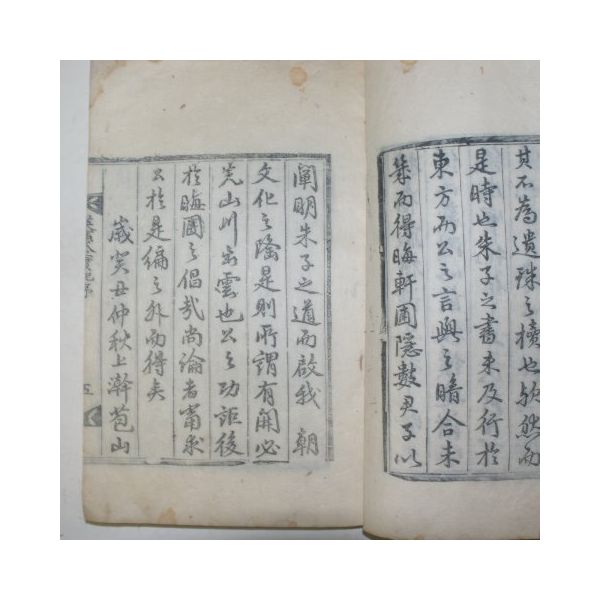 其不為遺珠之櫝也欤然而
是時也朱子之書未及行於
東方而公之言與之暗合未
幾而得晦軒圃隱數君子以
闡明朱子之道而啟我 朝
文化之隆是則所謂有開必
先山川出雲也公之功詎後
於晦圃之倡哉尚論者當求
公於是編之外而得矣
歲癸丑仲秋上澣苞山
五